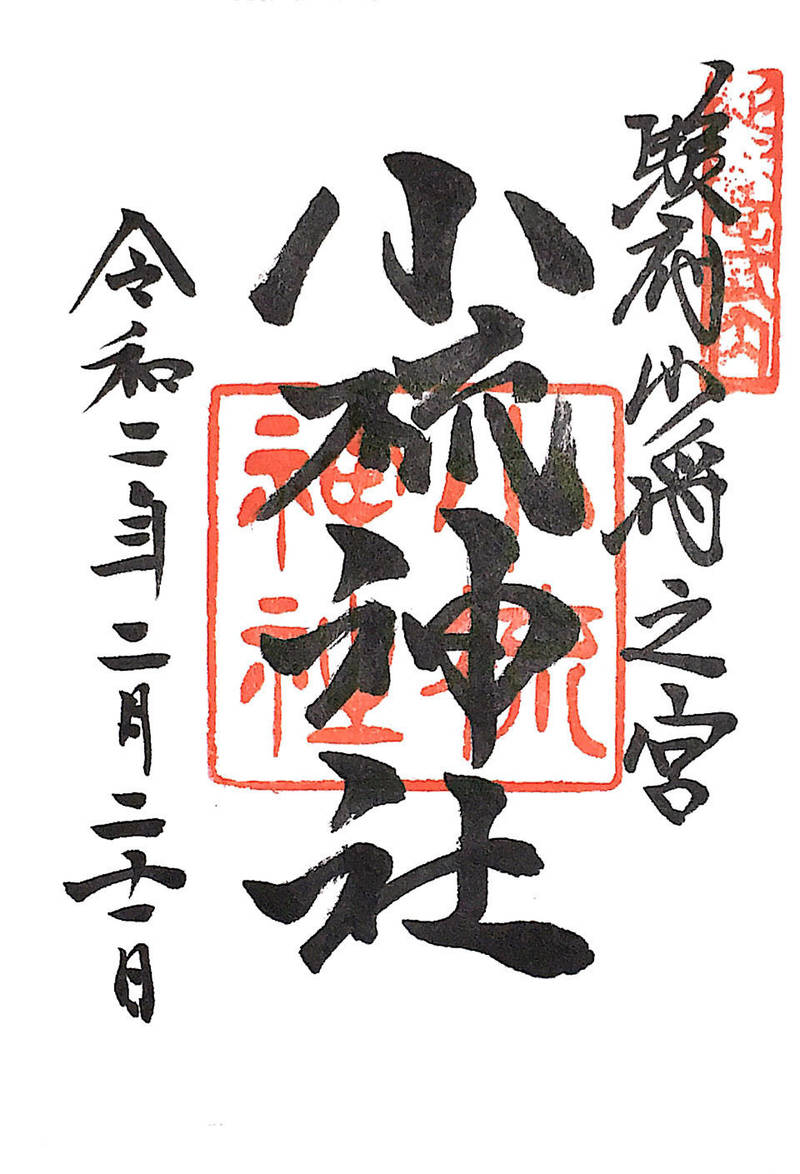 駿府少将之宮
小梳神社
令和二年二月二十一日
小梳
神社